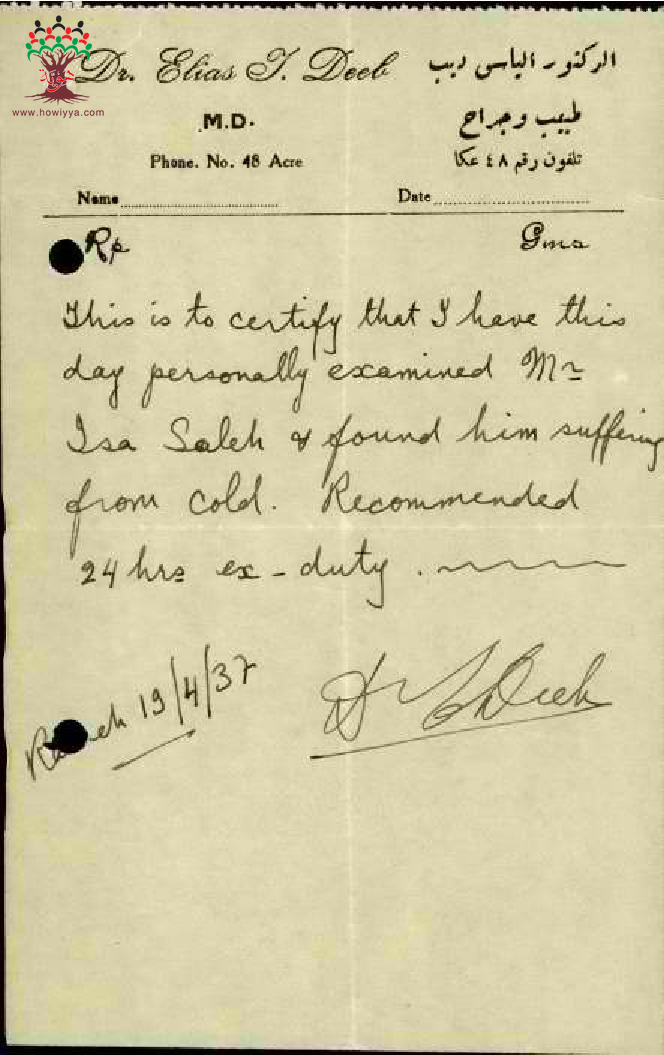 Dr. Elias T. Deeb
الدكتور الياس ديب
www.howiyya.com
M.D.
طبيب وجراح
Phone. No. 48 Acre
تلفون رقم ٤٨ عكا
Name
Date
Rp
Gms
This is to certify that I have this
day personally examined Mr
Isa Saleh & found him suffering
from cold. Recommended
24 hrs ex-duty.
19/4/37
Dr E Deeb